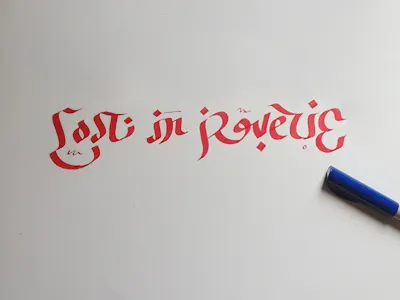 Lost in Reverie